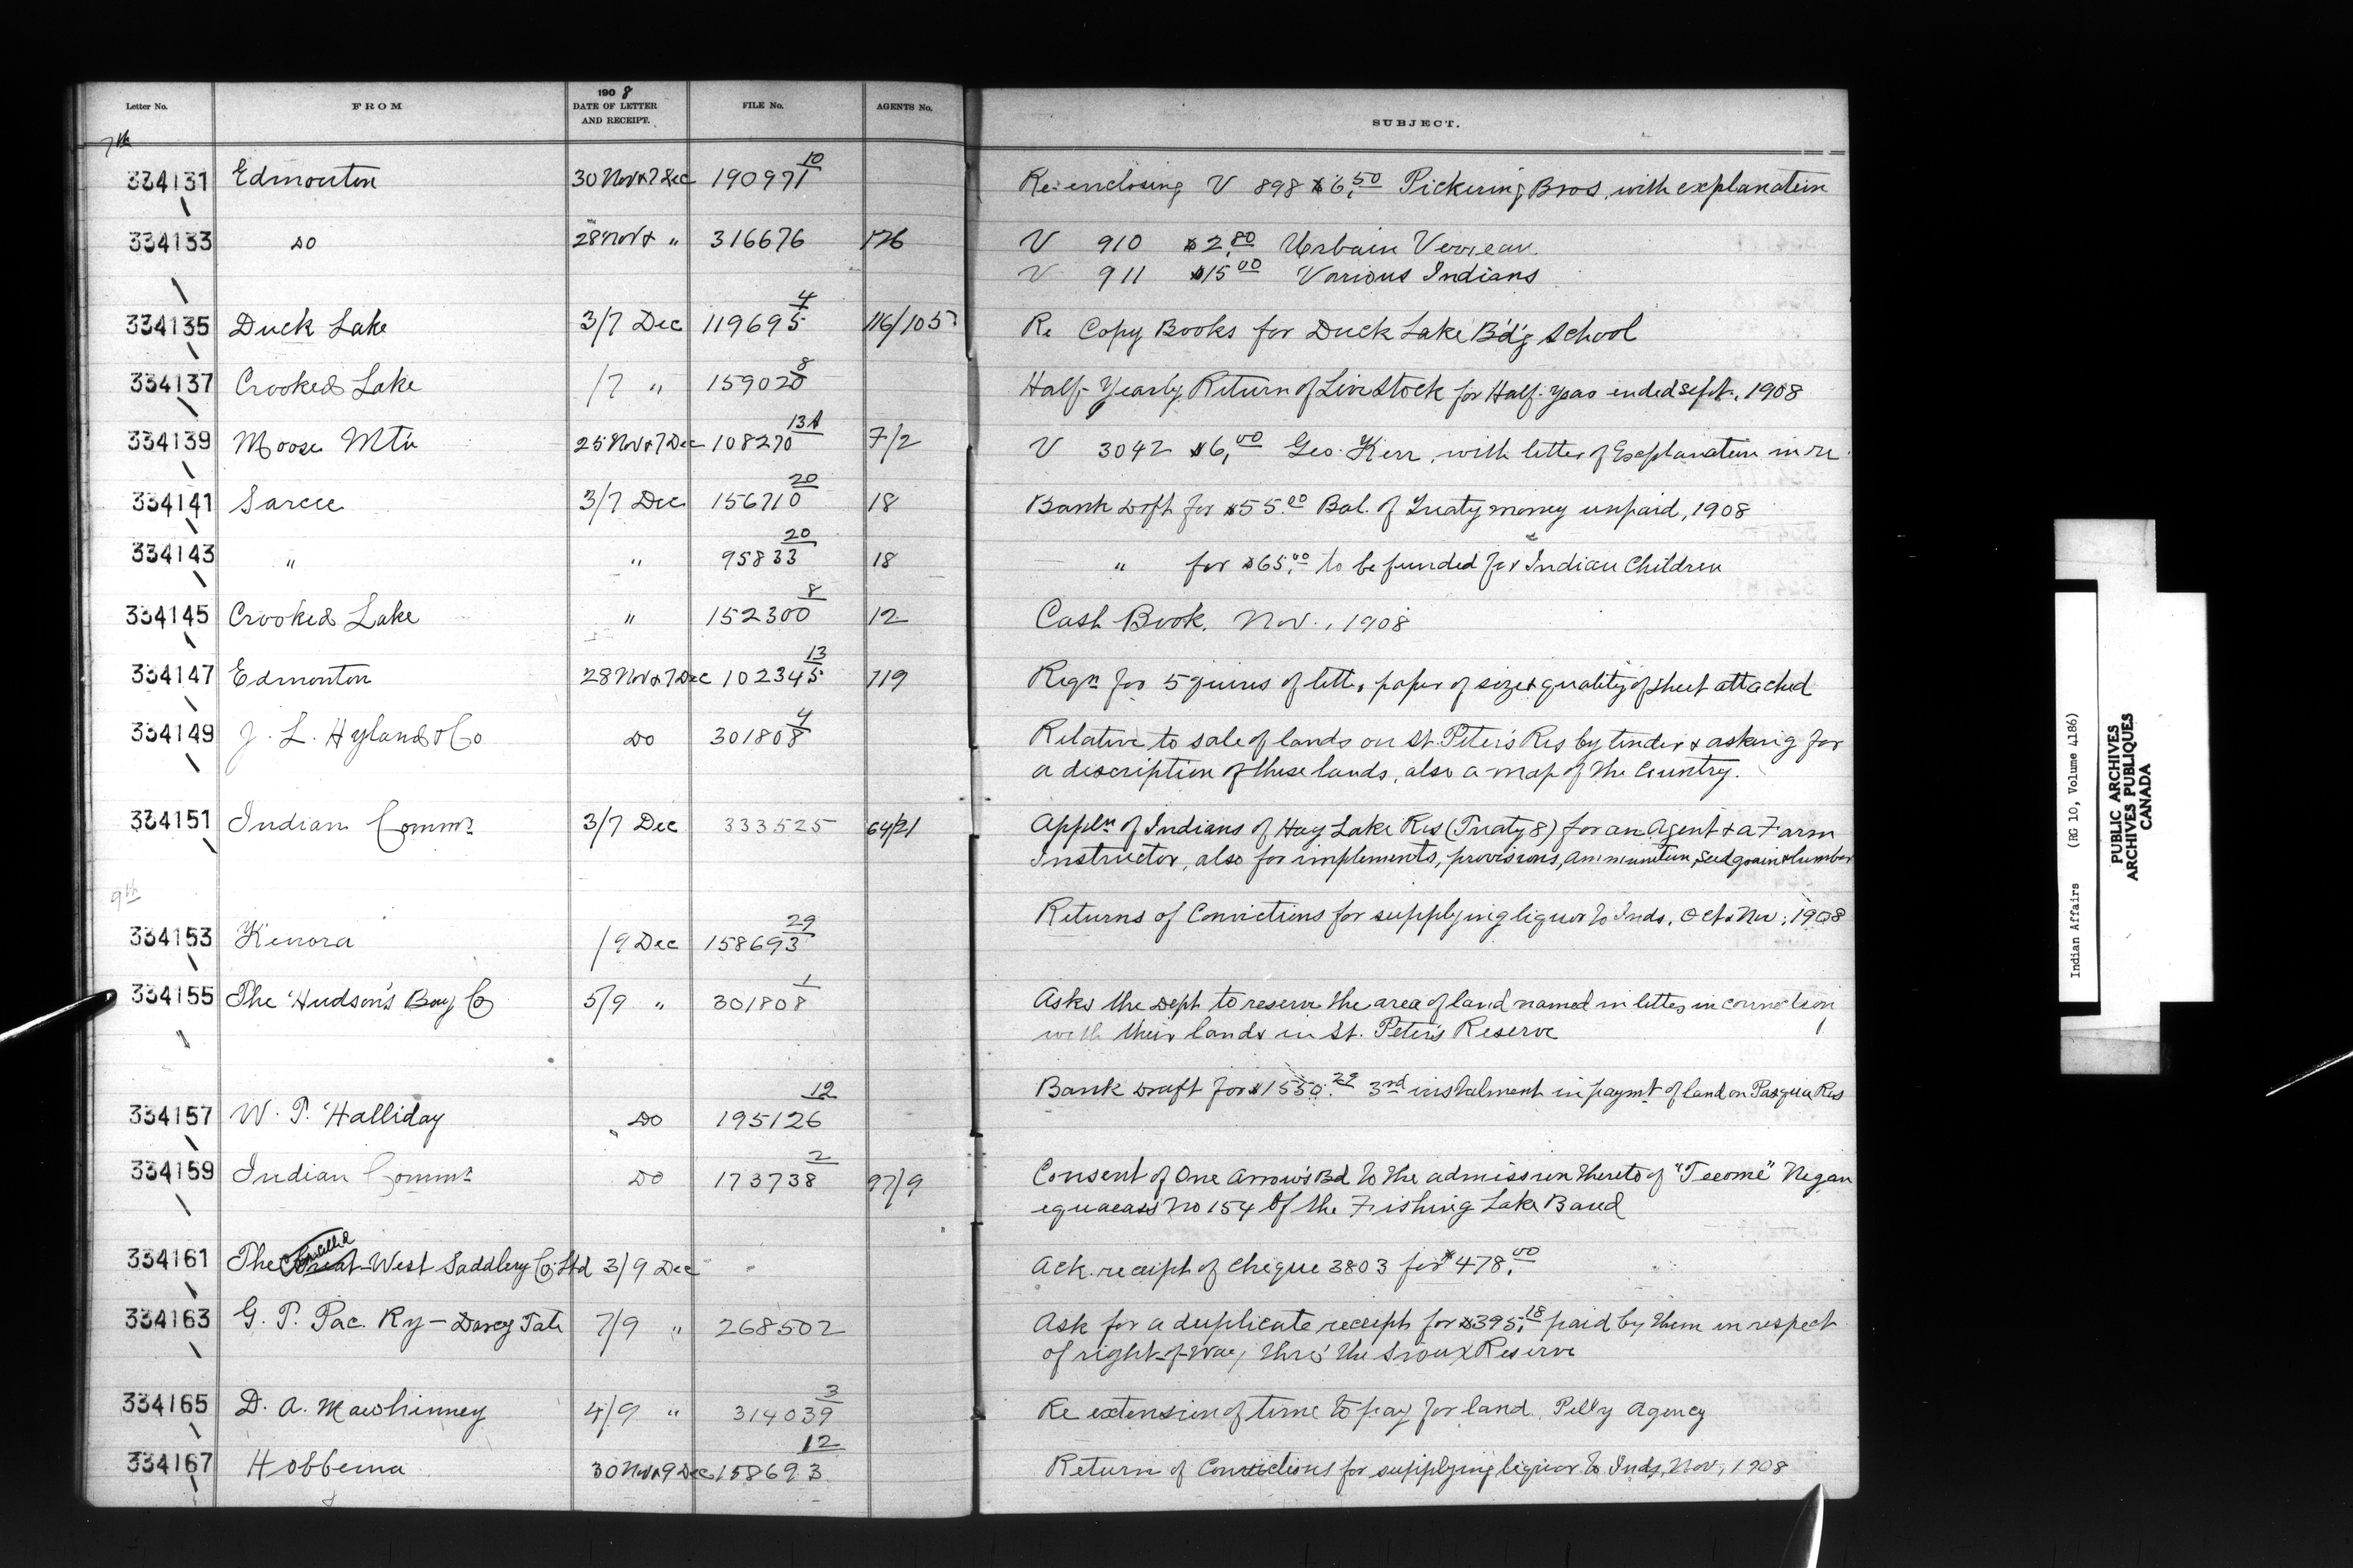 Letter No. FROM 1908 DATE OF LETTER AND RECEIPT. FILE No. AGENTS No. SUBJECT.
7th
334131 Edmonton 30 Nov & 7 Dec 190971 10 Re-enclosing V 898 $6.50 Pickering Bros. with explanation
334133 do 28 Nov & " 316676 126 V 910 $2.80 Urbain
V 911 $15.00 Various Indians
334135 Duck Lake 3/7 Dec 119695 4 116/105 Re Copy Books for Duck Lake B'd'g School
334137 Crooked Lake /7 " 159020 8 Half-Yearly Return of Live Stock for Half-year ended Sept., 1908
334139 Moose Mtn 25 Nov & 7 Dec 108270 13A 7/2 V 3042 $6.00 Geo. Kerr, with letter of Explanation in re
334141 Sarcee 3/7 Dec 156710 20 18 Bank Dft for $55.00 Bal. of Treaty money unpaid, 1908
334143 " " 95833 20 18 " for $65.00 to be funded for Indian Children
334145 Crooked Lake " 152300 8 12 Cash Book, Nov., 1908
334147 Edmonton 28 Nov & 7 Dec 102345 13 719 Reqn for 5 quires of letter paper of size & quality of sheet attached
334149 J. L. Hyland & Co Do 301808 4 Relative to sale of lands on St. Peter's Res by tender & asking for
a description of these lands, also a map of the Country.
334151 Indian Commr 3/7 Dec 333525 64/21 Appln of Indians of Hay Lake Res (Treaty 8) for an Agent & a Farm
Instructor, also for implements, provisions, ammunition, seed grain & lumber
9th
334153 Kenora /9 Dec 158693 29 Returns of Convictions for supplying liquor to Inds, Oct & Nov, 1908
334155 The Hudson's Bay Co 5/9 " 301808 1 Asks the Dept to reserve the area of land named in letter in connection
with their lands in St. Peter's Reserve
334157 W. P. Halliday Do 195126 12 Bank Draft for $1550.29 3rd instalment in paymt of land on Pasqua Res
334159 Indian Commr Do 173738 2 97/9 Consent of One Arrow's Bd to the admission thereto of
No 154 of the Fishing Lake Band
334161 The Great West Saddlery Co Ltd 3/9 Dec Ack. receipt of cheque 3803 for $478.00
334163 G. T. Pac. Ry - Darcy Tate 7/9 " 268502 Ask for a duplicate receipt for $395.18 paid by them in respect
of right-of-way thro' the Sioux Reserve
334165 D. A. Mawhinney 4/9 " 314039 3 Re extension of time to pay for land, Pelly Agency
334167 Hobbema 30 Nov & 9 Dec 158693 12 Return of Convictions for supplying liquor to Inds, Nov, 1908
Indian Affairs (RG 10, Volume 4186)
PUBLIC ARCHIVES
ARCHIVES PUBLIQUES
CANADA